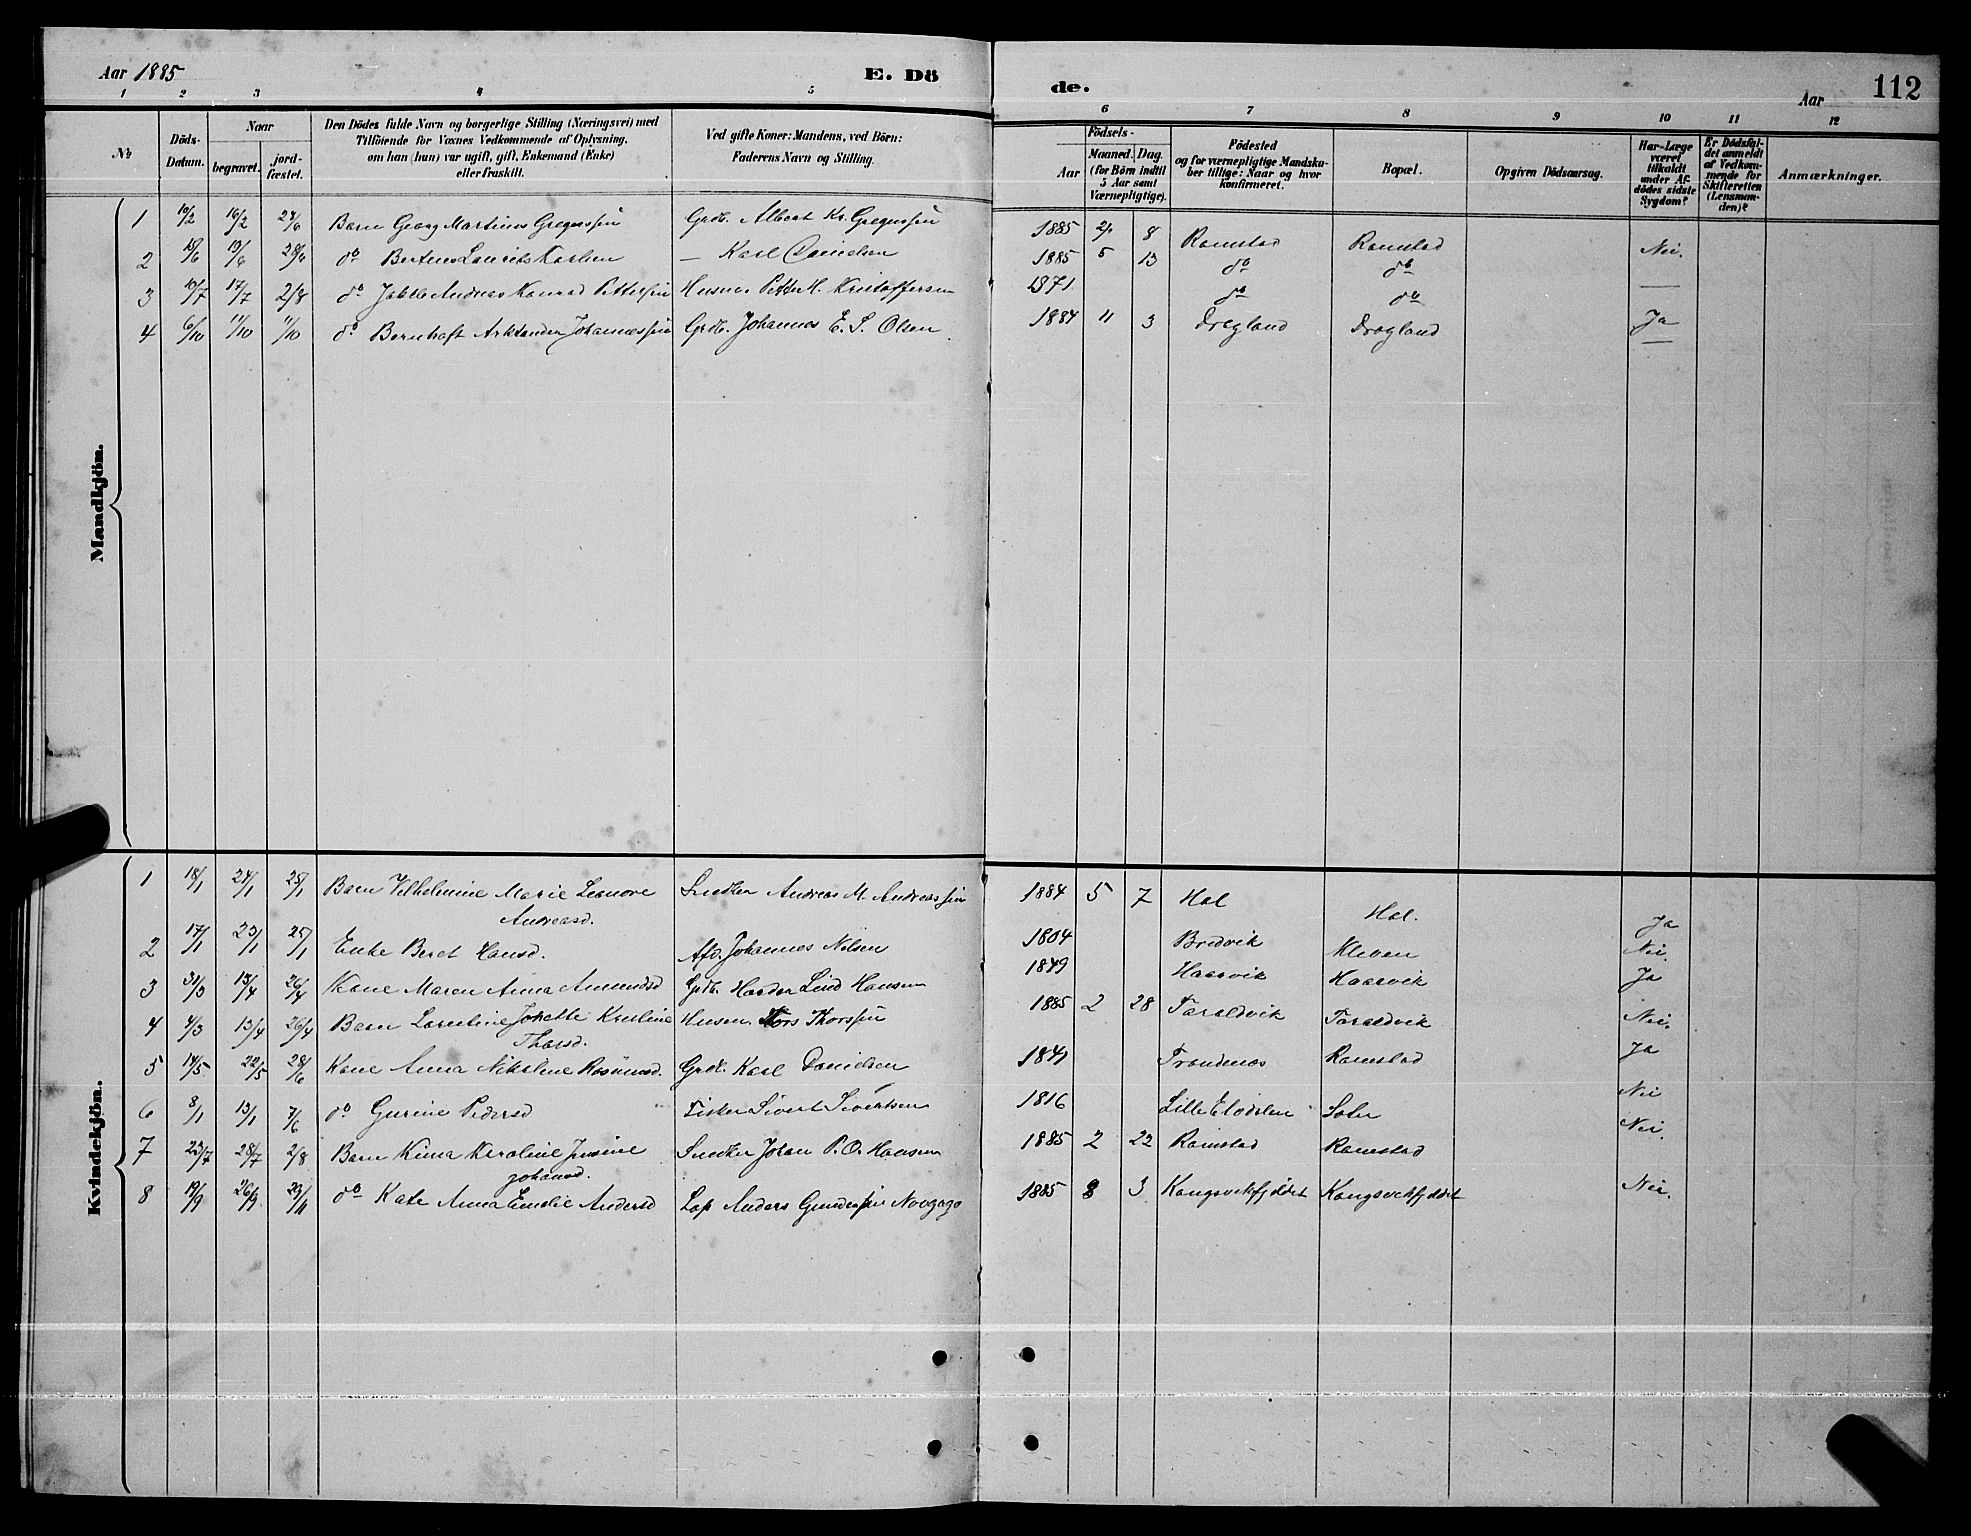 Aar 1885 E. Dö de. Aar 112
1 2 3 4 5 6 7 8 9 10 11 12
№
Döds-Datum.
Naar
begravet. jord-fæstet.
Den Dödes fulde Navn og borgerlige Stilling (Næringsvei) med
Tilföiende for Voxnes Vedkommende af Oplysning,
om han (hun) var ugift, gift, Enkemand (Enke)
eller fraskilt.
Ved gifte Koner: Mandens, ved Börn:
Faderens Navn og Stilling.
Födsels-
Aar Maaned. Dag.
(for Börn indtil
5 Aar samt
Værnepligtige).
Födested
og for værnepligtige Mandska-
ber tillige: Naar og hvor
konfirmeret.
Bopæl.
Opgiven Dödsaarsag.
Har Læge
været
tilkaldt
under Af-
dödes sidste
Sygdom?
Er Dödsfal-
det anmeldt
af Vedkom-
mende for
Skifteretten
(Lensman-
den)?
Anmærkninger.
Mandkjön.
1 10/2 16/2 28/6 Barn Georg Martinus Gregussen Grdb. Albert Kr. Gregussen 1885 8 Ramstad Ramstad
2 15/6 19/6 28/6 do Laurits Karlsen — Karl Danielsen 1885 5 13 do do Nei.
3 10/7 17/7 2/8 do Andreas Konrad Pettersen Husm. Petter H. Kristoffersen 1871 do do —
4 6/10 11/10 11/10 do Bernhoft Arktander Johannessen Grdb. Johannes E. S. Olsen 1884 11 3 Drogland Drogland Ja
Kvindekjön.
1 18/1 24/1 25/1 Barn Vilhelmine Marie Leonore Snedker Andreas M. Andreassen 1884 5 7 Hol Hol. Ja
Andreasd.
2 17/1 23/1 25/1 Enke Beret Hansd. Afd. Johannes Nilsen 1804 Bredvik Kleven Nei.
3 31/3 13/4 26/4 Kone Maren Anna Amundsd Grdb. Lind Hansen 1849 Haarvik Haarvik Ja
4 4/3 13/4 26/4 Barn Lorentine Jonette Kristine Husm. Tors Thorsen 1885 2 28 Taraldvik Taraldvik Nei.
Thorsd.
5 14/5 22/5 28/6 Kone Anna Nikoline Rasmusd. Grdb. Karl Danielsen 1841 Trondenæs Ramstad Ja
6 8/1 13/1 7/6 do Gurine Pedersd Fisker Sivert Sivertsen 1816 Lille Nei
7 23/7 28/7 2/8 Barn Kima Karoline Jensine Snedker Johan P. O. Hansen 1885 2 22 Ramstad Ramstad Nei.
Johansd.
8 19/9 26/9 29/11 do Kate Anna Emelie Andersd Lap Anders Gundersen 1885 8 3 Kongsvikfjeldet Kongsvikfjeldet Nei.